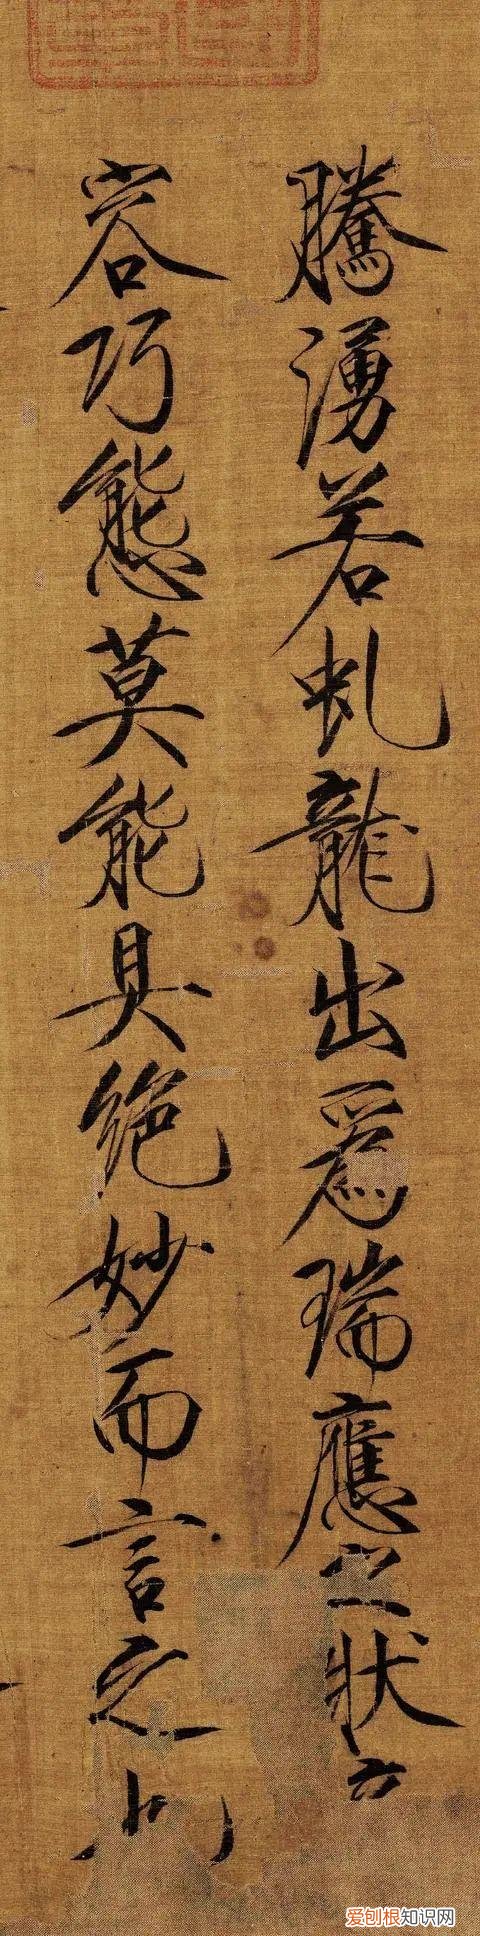 騰湧若虬龍出為瑞應之狀
容巧態莫能具絕妙而言之
爱刨根知识网